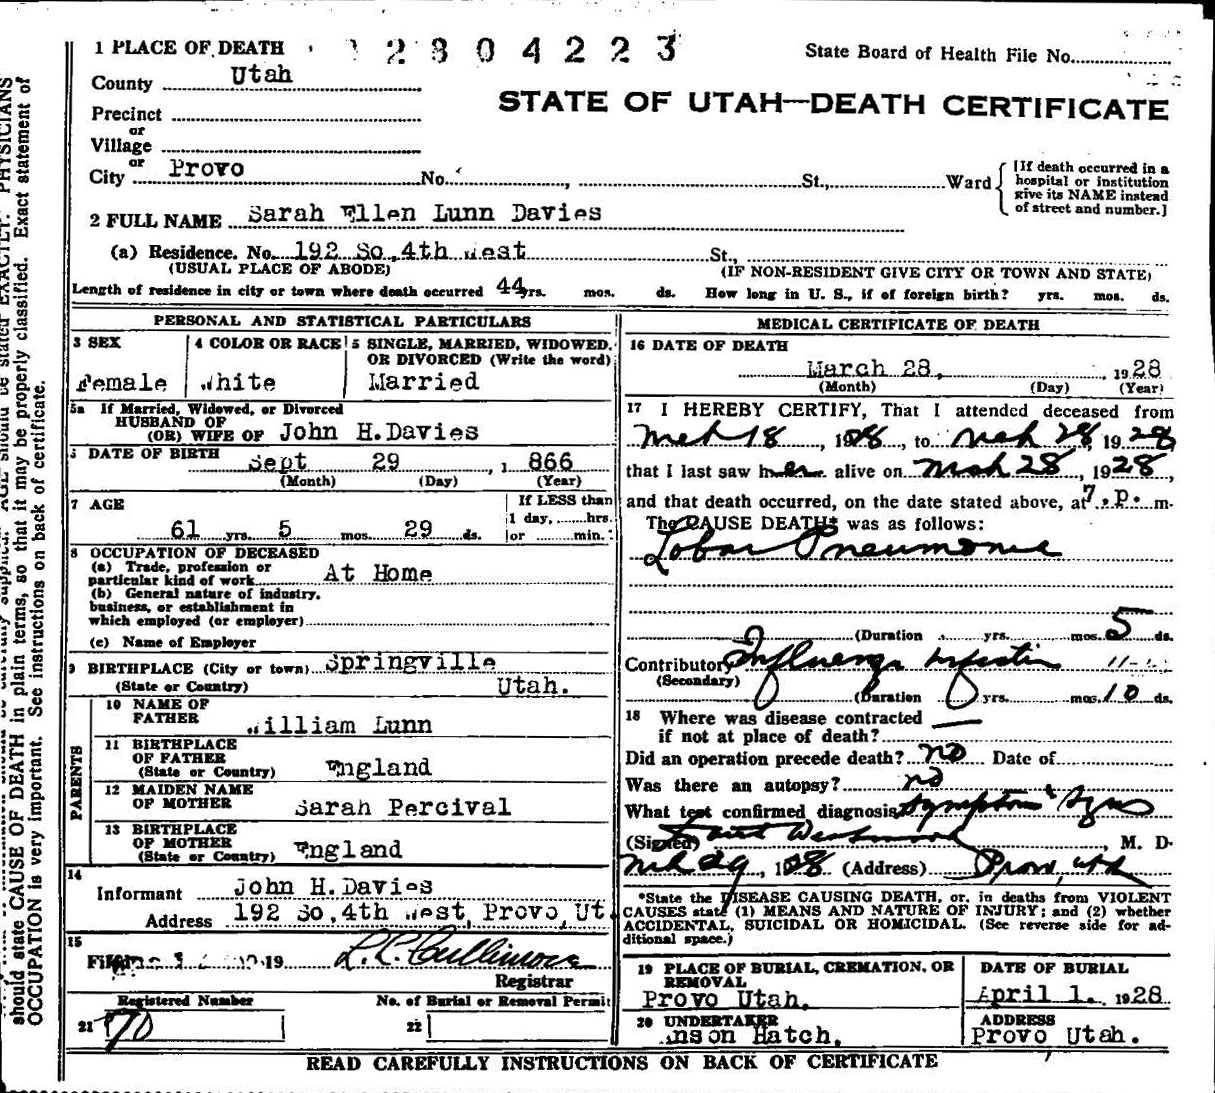 1 PLACE OF DEATH 2804223 State Board of Health File No.
County Utah
STATE OF UTAH—DEATH CERTIFICATE
Precinct
or
Village
or
City Provo No. , St., Ward
[If death occurred in a
hospital or institution
give its NAME instead
of street and number.]
2 FULL NAME Sarah Ellen Lunn Davies
(a) Residence. No. 192 So.4th West St.,
(USUAL PLACE OF ABODE) (IF NON-RESIDENT GIVE CITY OR TOWN AND STATE)
Length of residence in city or town where death occurred 44 yrs. mos. ds. How long in U. S., if of foreign birth? yrs. mos. ds.
PERSONAL AND STATISTICAL PARTICULARS
3 SEX
Female
4 COLOR OR RACE
White
5 SINGLE, MARRIED, WIDOWED,
OR DIVORCED (Write the word)
Married
5a If Married, Widowed, or Divorced
HUSBAND OF
(OR) WIFE OF John H.Davies
6 DATE OF BIRTH Sept 29 , 1 866
(Month) (Day) (Year)
7 AGE
61 yrs. 5 mos. 29 ds.
If LESS than
1 day, hrs.
or min.
8 OCCUPATION OF DECEASED
(a) Trade, profession or
particular kind of work At Home
(b) General nature of industry,
business, or establishment in
which employed (or employer)
(c) Name of Employer
9 BIRTHPLACE (City or town) Springville
(State or Country) Utah.
PARENTS
10 NAME OF
FATHER William Lunn
11 BIRTHPLACE
OF FATHER
(State or Country) England
12 MAIDEN NAME
OF MOTHER Sarah Percival
13 BIRTHPLACE
OF MOTHER
(State or Country) England
14
Informant John H.Davies
Address 192 So.4th West, Provo, Ut.
15
Filed 19 L. R. Cullimore
Registrar
Registered Number No. of Burial or Removal Permit
21 70 22
MEDICAL CERTIFICATE OF DEATH
16 DATE OF DEATH
March 28, , 1928
(Month) (Day) (Year)
17 I HEREBY CERTIFY, That I attended deceased from
Mch 18 , 1928 , to Mch 28 , 1928
that I last saw her alive on Mch 28 , 1928,
and that death occurred, on the date stated above, at 7. P. m.
The CAUSE DEATH* was as follows:
Lobar Pneumonia
(Duration yrs. mos. 5 ds.
Contributory Influenza Infection 11-
(Secondary)
(Duration yrs. mos. 10 ds.
18 Where was disease contracted
if not at place of death?
Did an operation precede death? no Date of
Was there an autopsy? no
What test confirmed diagnosis Symptoms & Signs
(Signed) , M. D.
Mch 29, 1928 (Address) Provo, Utah
*State the DISEASE CAUSING DEATH, or, in deaths from VIOLENT
CAUSES state (1) MEANS AND NATURE OF INJURY; and (2) whether
ACCIDENTAL, SUICIDAL OR HOMICIDAL. (See reverse side for ad-
ditional space.)
19 PLACE OF BURIAL, CREMATION, OR
REMOVAL
Provo Utah.
DATE OF BURIAL
April 1. 1928
20 UNDERTAKER
Anson Hatch.
ADDRESS
Provo Utah.
READ CAREFULLY INSTRUCTIONS ON BACK OF CERTIFICATE
should state CAUSE OF DEATH in plain terms, so that it may be properly classified. Exact statement of
OCCUPATION is very important. See instructions on back of certificate.